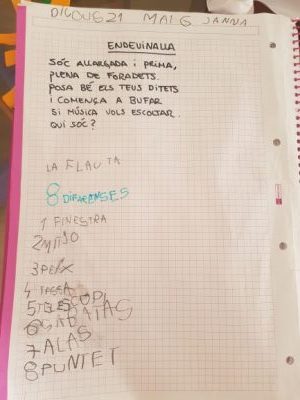 DIJOUS 21 MAIG JANNA
ENDEVINALLA
SÓC ALLARGADA I PRIMA,
PLENA DE FORADETS.
POSA BÉ ELS TEUS DITETS
I COMENÇA A BUFAR
SI MÚSICA VOLS ESCOLTAR.
QUI SÓC?
LA FLAUTA
8 DIFARENSES
1 FINESTRA
2 MITJO
3 PEIX
4 TASSA
5 TELESCOPI
6 SABATAS
7 ALAS
8 PUNTET